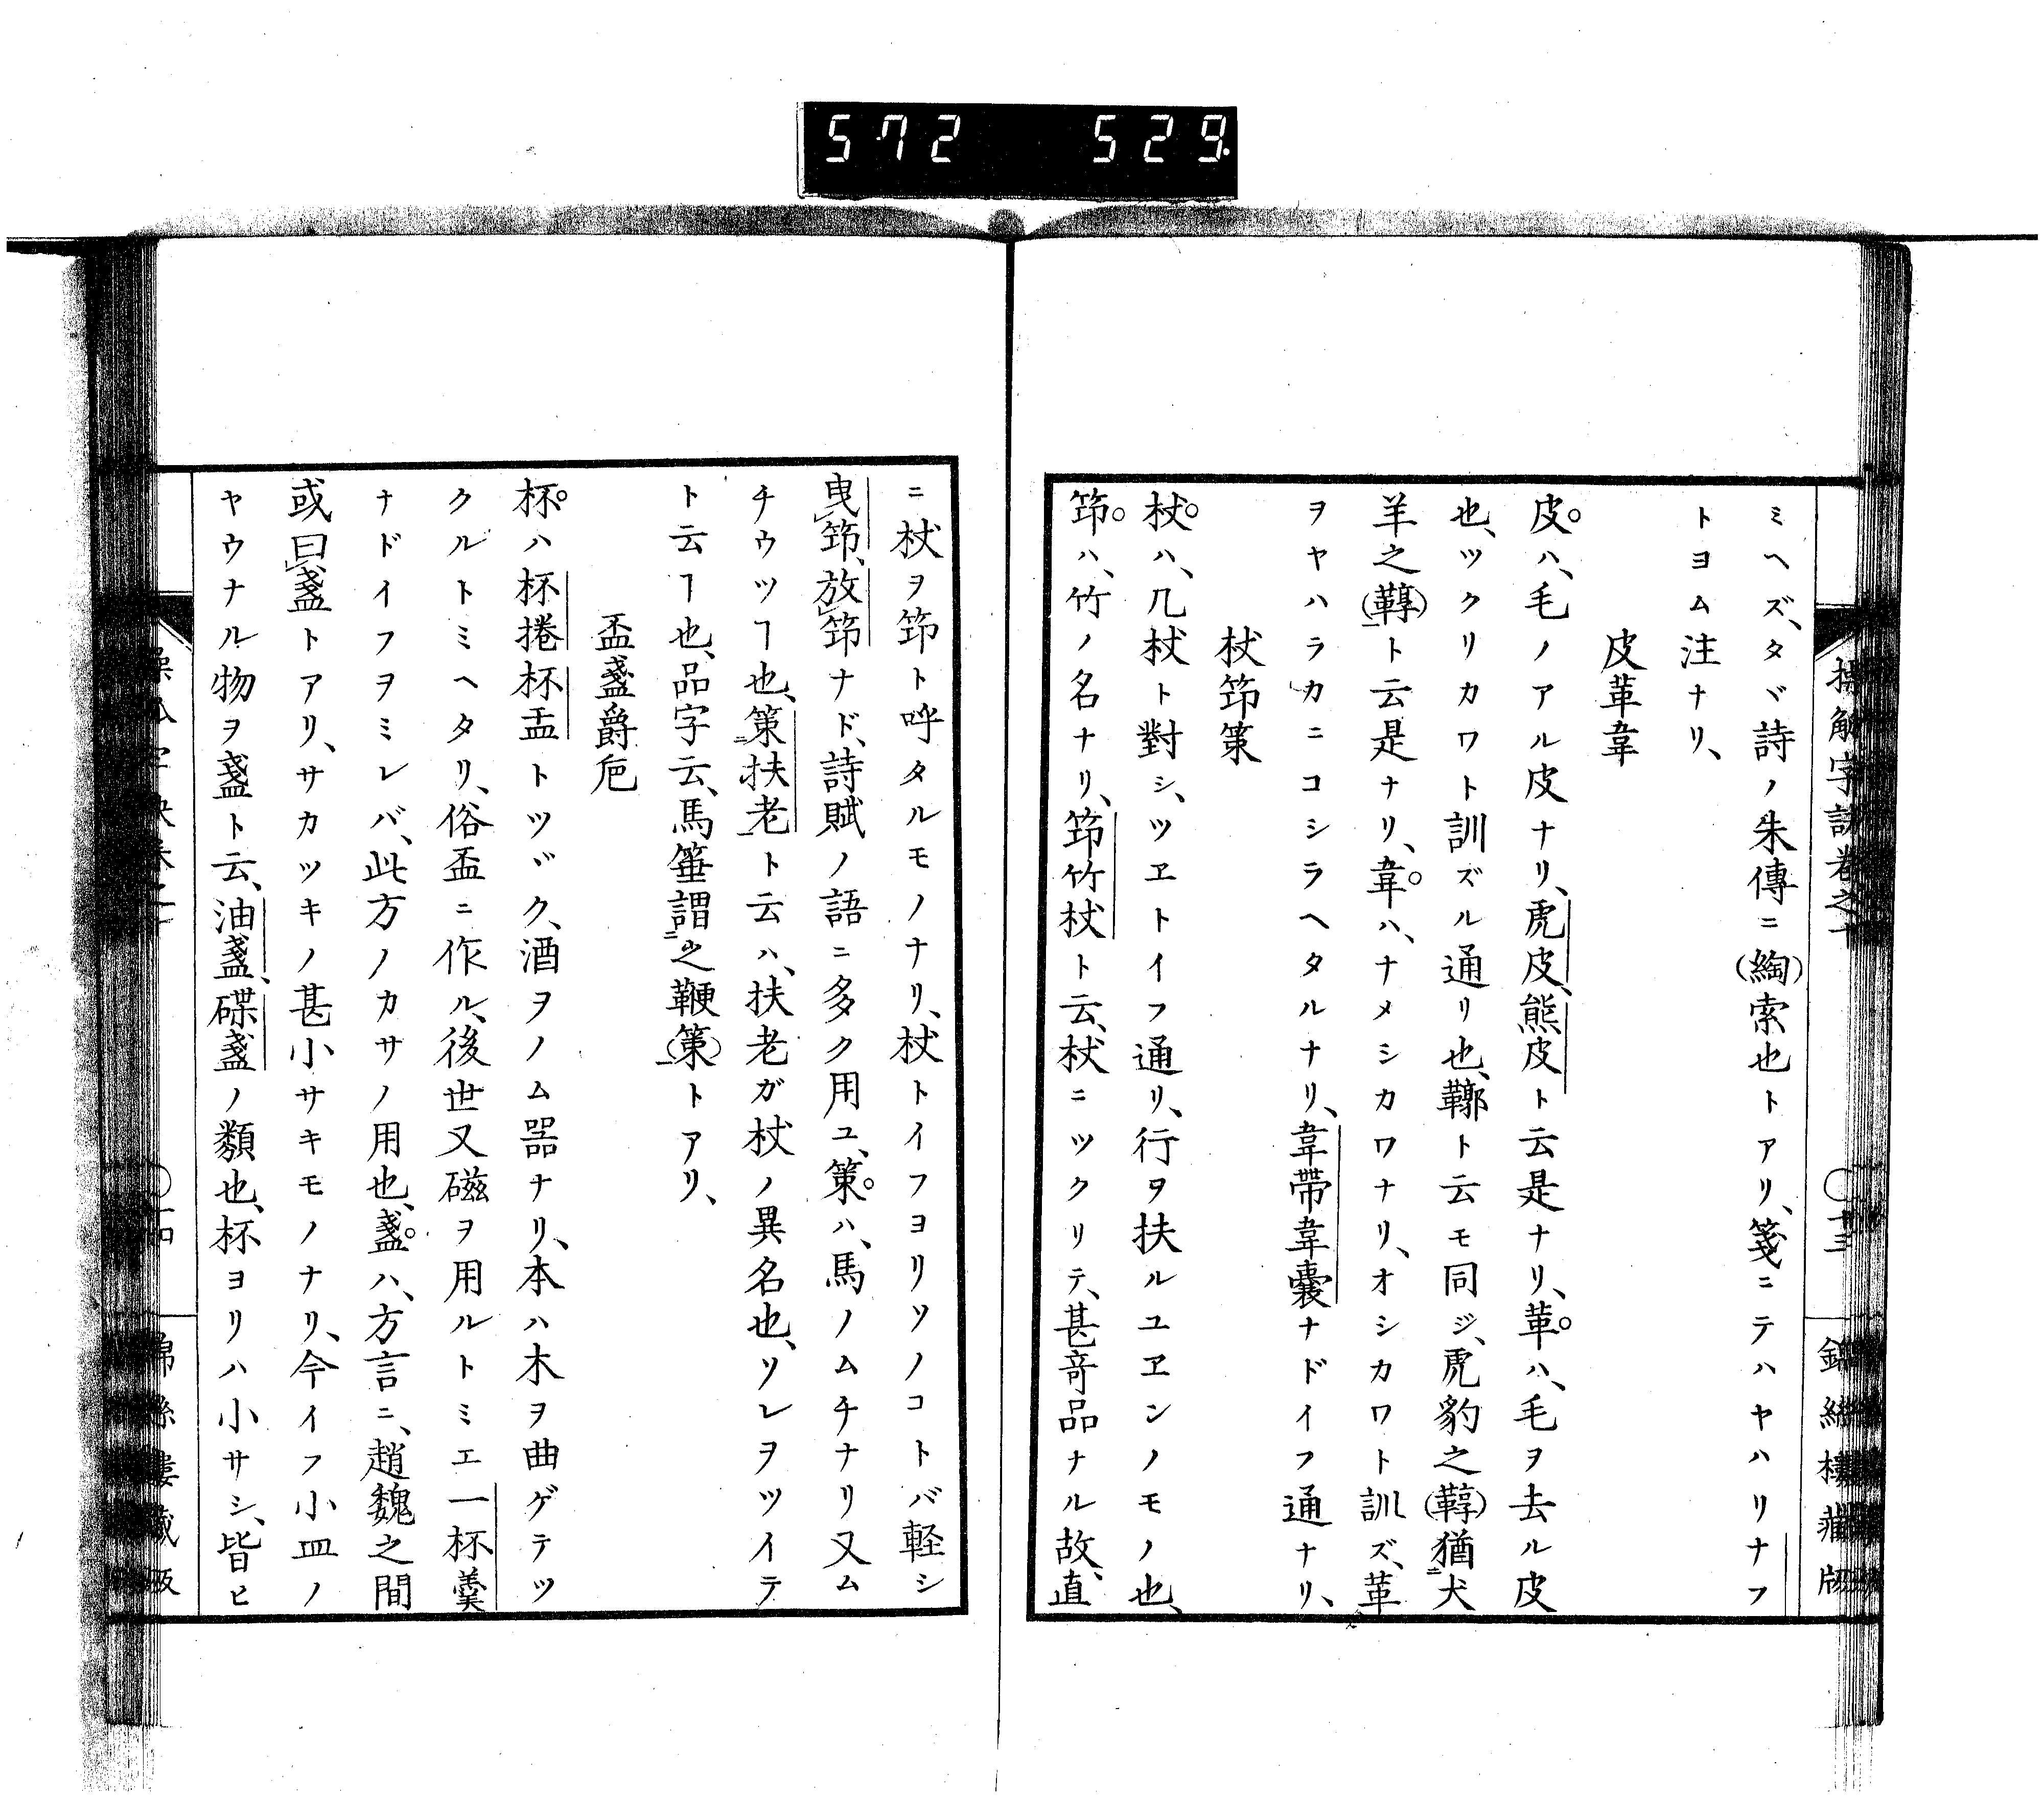 572 529
ミヘズ、タヾ詩ノ朱傳ニ(綯)索也トアリ、箋ニテハヤハリナフ
トヨム注ナリ、
皮革韋
皮。ハ、毛ノアル皮ナリ、虎皮、熊皮ト云是ナリ、革。ハ、毛ヲ去ル皮
也、ツクリカワト訓ズル通リ也、鞹ト云モ同ジ、虎豹之(鞟)猶犬
羊之(鞟)ト云是ナリ、韋。ハ、ナメシカワナリ、オシカワト訓ズ、革
ヲヤハラカニコシラヘタルナリ、韋帶韋囊ナドイフ通ナリ、
杖笻策
杖。ハ、几杖ト對シ、ツヱトイフ通リ、行ヲ扶ルユヱンノモノ也、
笻。ハ、竹ノ名ナリ、笻竹杖ト云、杖ニツクリテ、甚竒品ナル故、直
ニ杖ヲ笻ト呼タルモノナリ、杖トイフヨリソノコトバ軽シ
曳笻、放笻ナド、詩賦ノ語ニ多ク用ユ、策。ハ、馬ノムチナリ又ム
チウツヿ也、策扶老ト云ハ、扶老ガ杖ノ異名也、ソレヲツイテ
ト云ヿ也、品字云、馬箠謂之鞭(策)トアリ、
盃盞爵巵
杯。ハ杯捲杯盂トツヾク、酒ヲノム器ナリ、本ハ木ヲ曲ゲテツ
クルトミヘタリ、俗盃ニ作ル、後世又磁ヲ用ルトミエ一杯羹
ナドイフヲミレバ、此方ノカサノ用也、盞。ハ、方言ニ、趙魏之間
或曰盞トアリ、サカツキノ甚小サキモノナリ、今イフ小皿ノ
ヤウナル物ヲ盞ト云、油盞、碟盞ノ類也、杯ヨリハ小サシ、皆ヒ